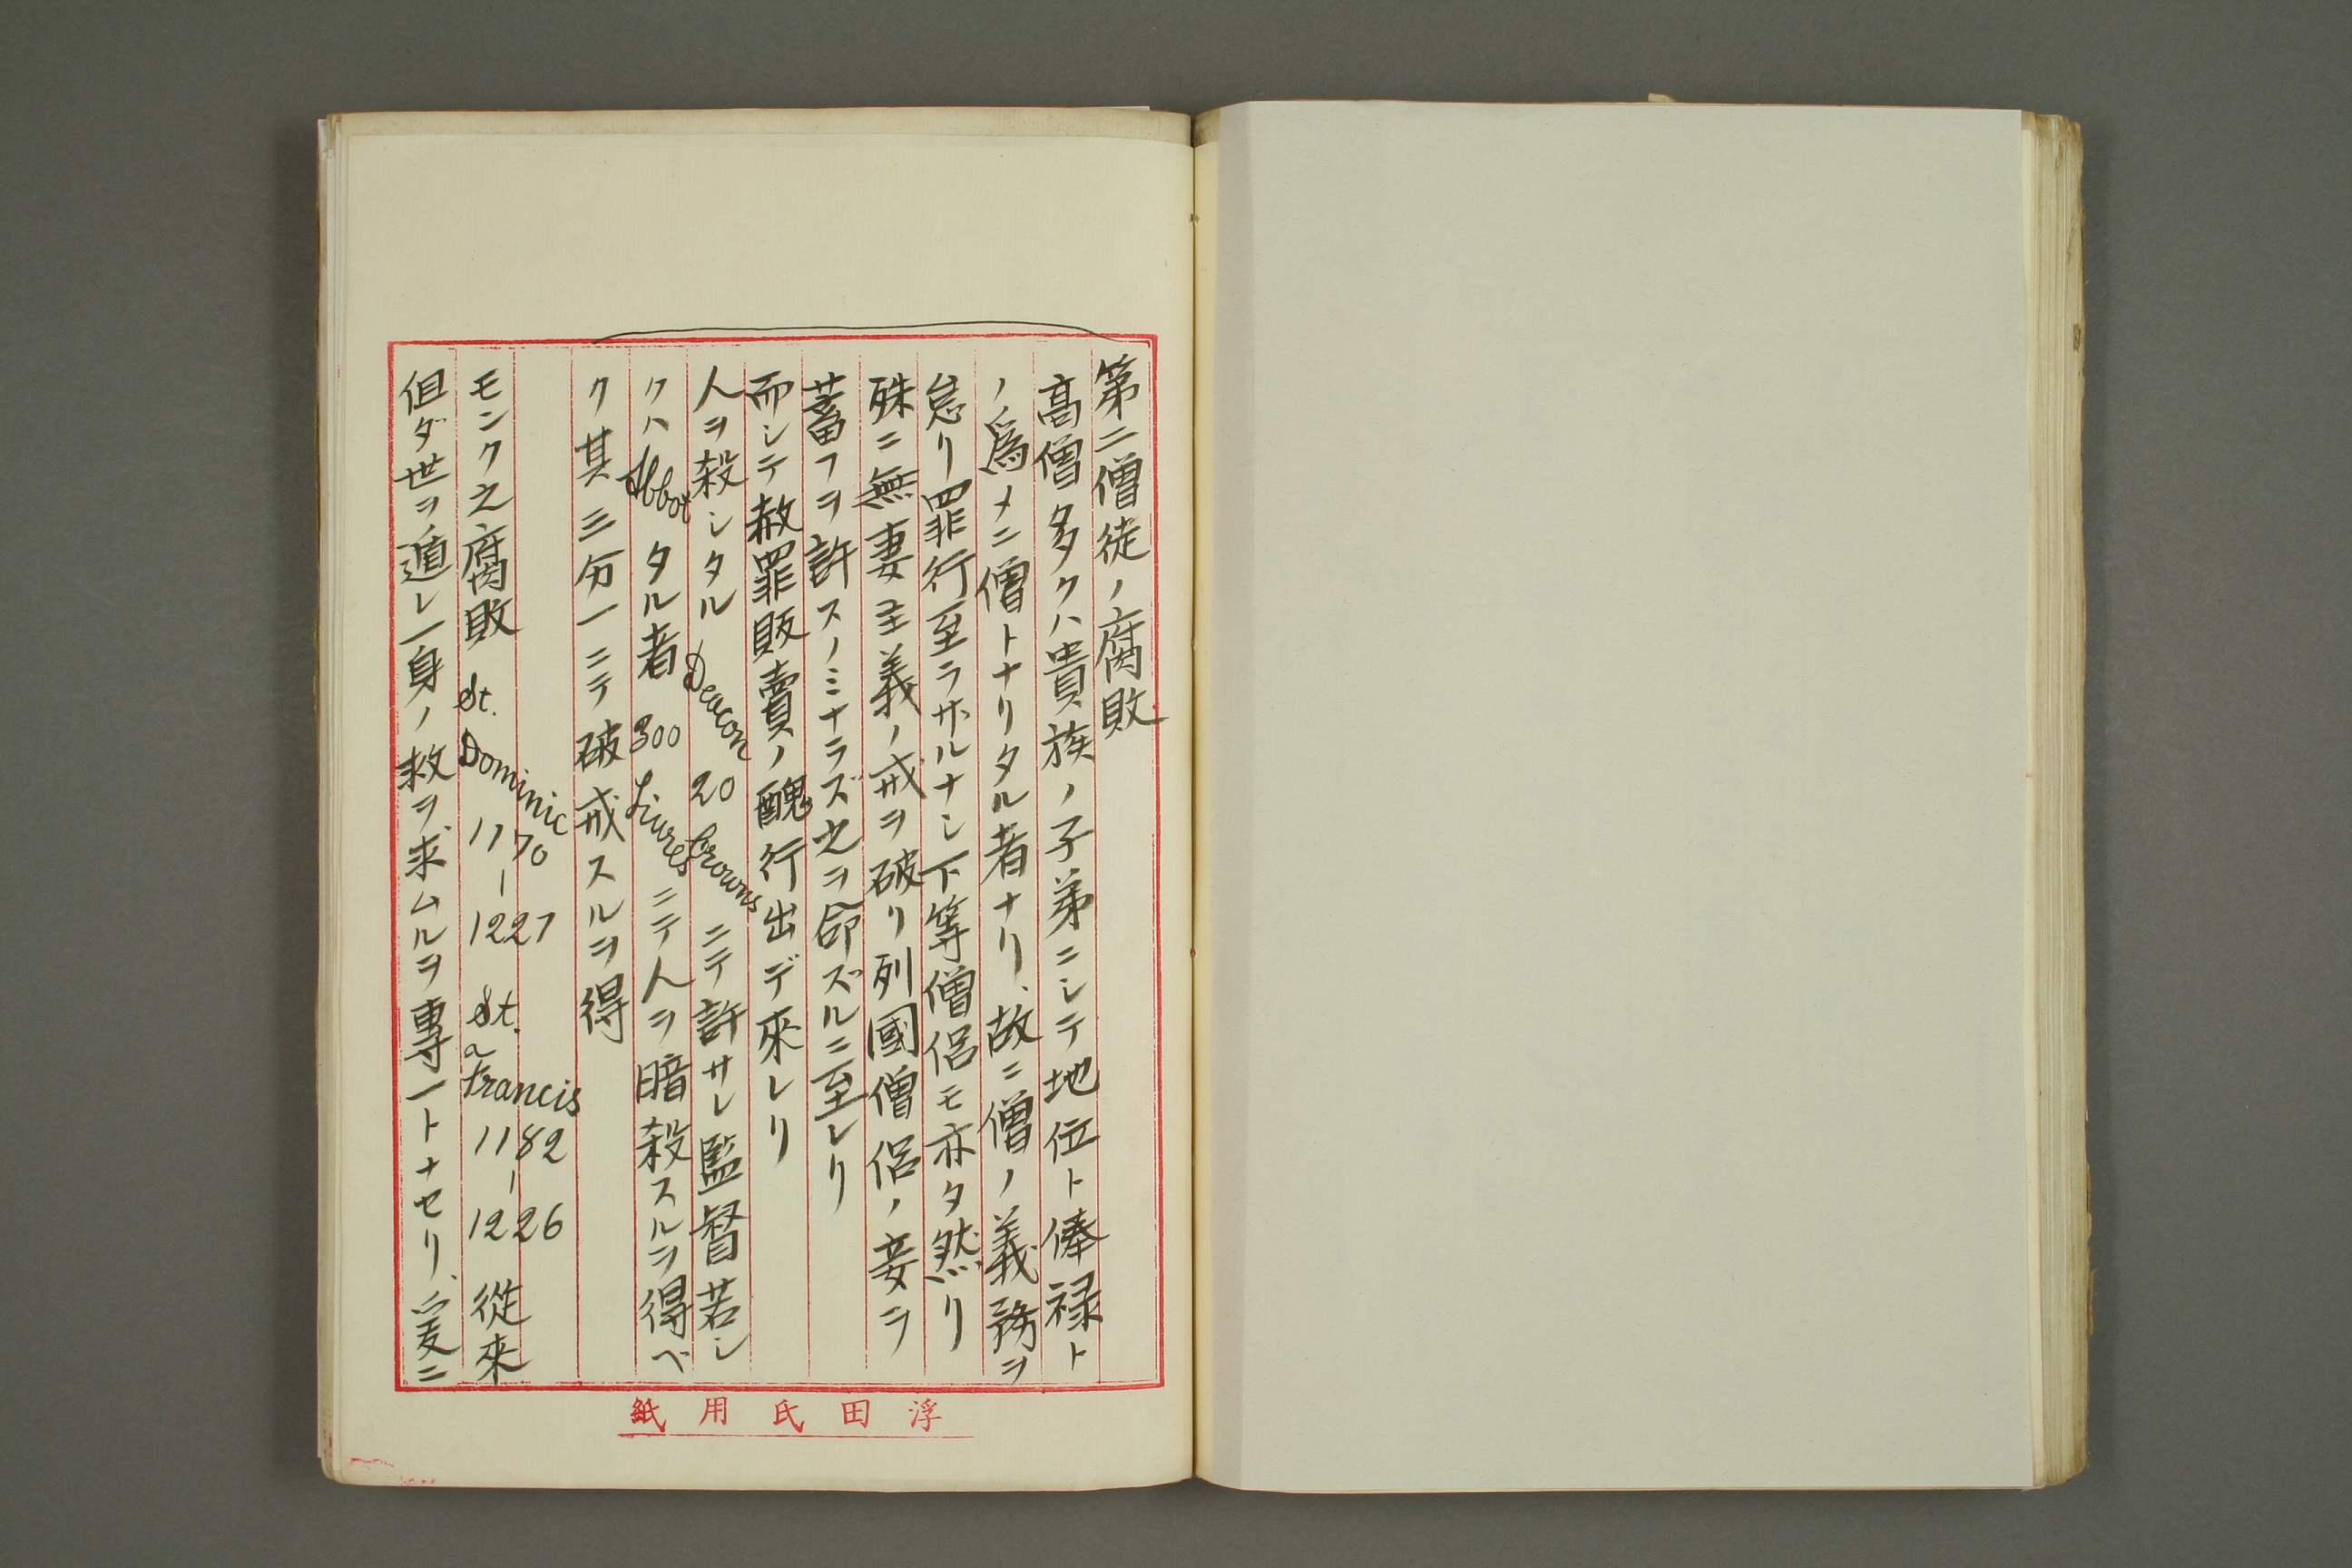 第二僧徒ノ腐敗
高僧多クハ貴族ノ子弟ニシテ地位ト俸禄ト
ノ為メニ僧トナリタル者ナリ、故ニ僧ノ義務ヲ
怠リ罪行至ラザルナシ下等僧侶モ亦タ然リ
殊ニ無妻主義ノ戒ヲ破リ列國僧侶ノ妾ヲ
蓄フヲ許スノミナラズ之ヲ命ズルニ至レリ
而シテ赦罪販賣ノ醜行出デ來レリ
人ヲ殺シタル Deacon 20 Crowns ニテ許サレ監督若シ
クハ Abbot タル者 300 Livres ニテ人ヲ暗殺スルヲ得ベ
ク其三分一ニテ破戒スルヲ得
モンク之腐敗 St. Dominic 1170-1227 St. Francis 1182-1226 從來
但ダ世ヲ遁レ一身ノ救ヲ求ムルヲ專一トナセリ、爰ニ
浮田氏用紙